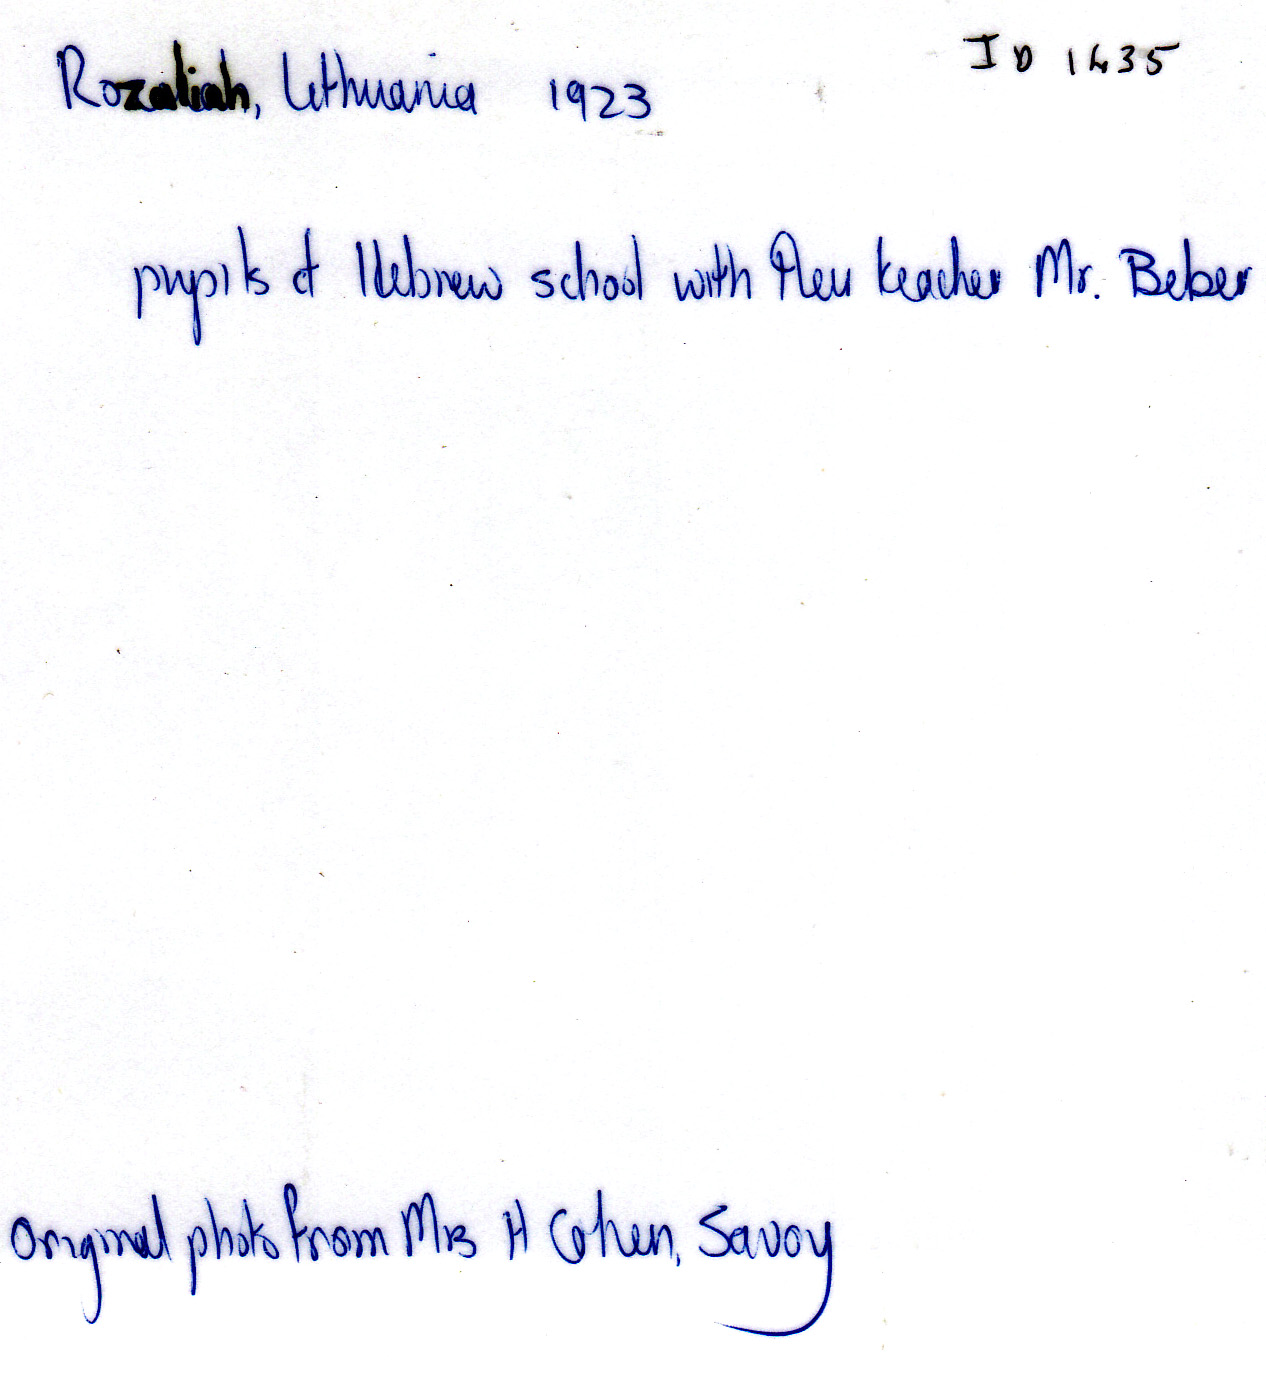 Rozaliah, Lithuania 1923
ID 1435
pupils of Hebrew school with their teacher Mr. Beber
Original photo from Mrs H Cohen, Savoy